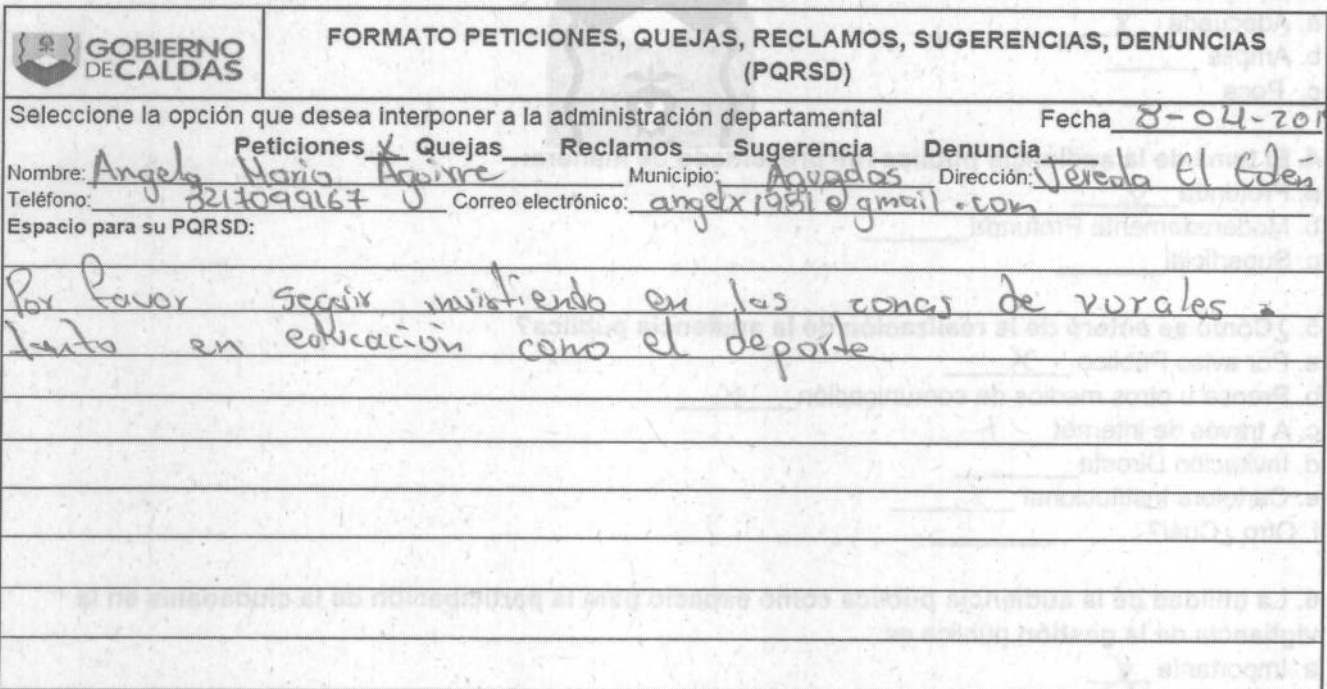 GOBIERNO
DE CALDAS
FORMATO PETICIONES, QUEJAS, RECLAMOS, SUGERENCIAS, DENUNCIAS
(PQRSD)
Seleccione la opción que desea interponer a la administración departamental Fecha 8-04-201
Peticiones X Quejas Reclamos Sugerencia Denuncia
Nombre: Angela Maria Aguirre Municipio: Aguadas Dirección: Vereda El Eden
Teléfono: 3217099167 Correo electrónico: angelx1981@gmail.com
Espacio para su PQRSD:
Por favor seguir invirtiendo en las zonas de rurales.
tanto en educación como el deporte